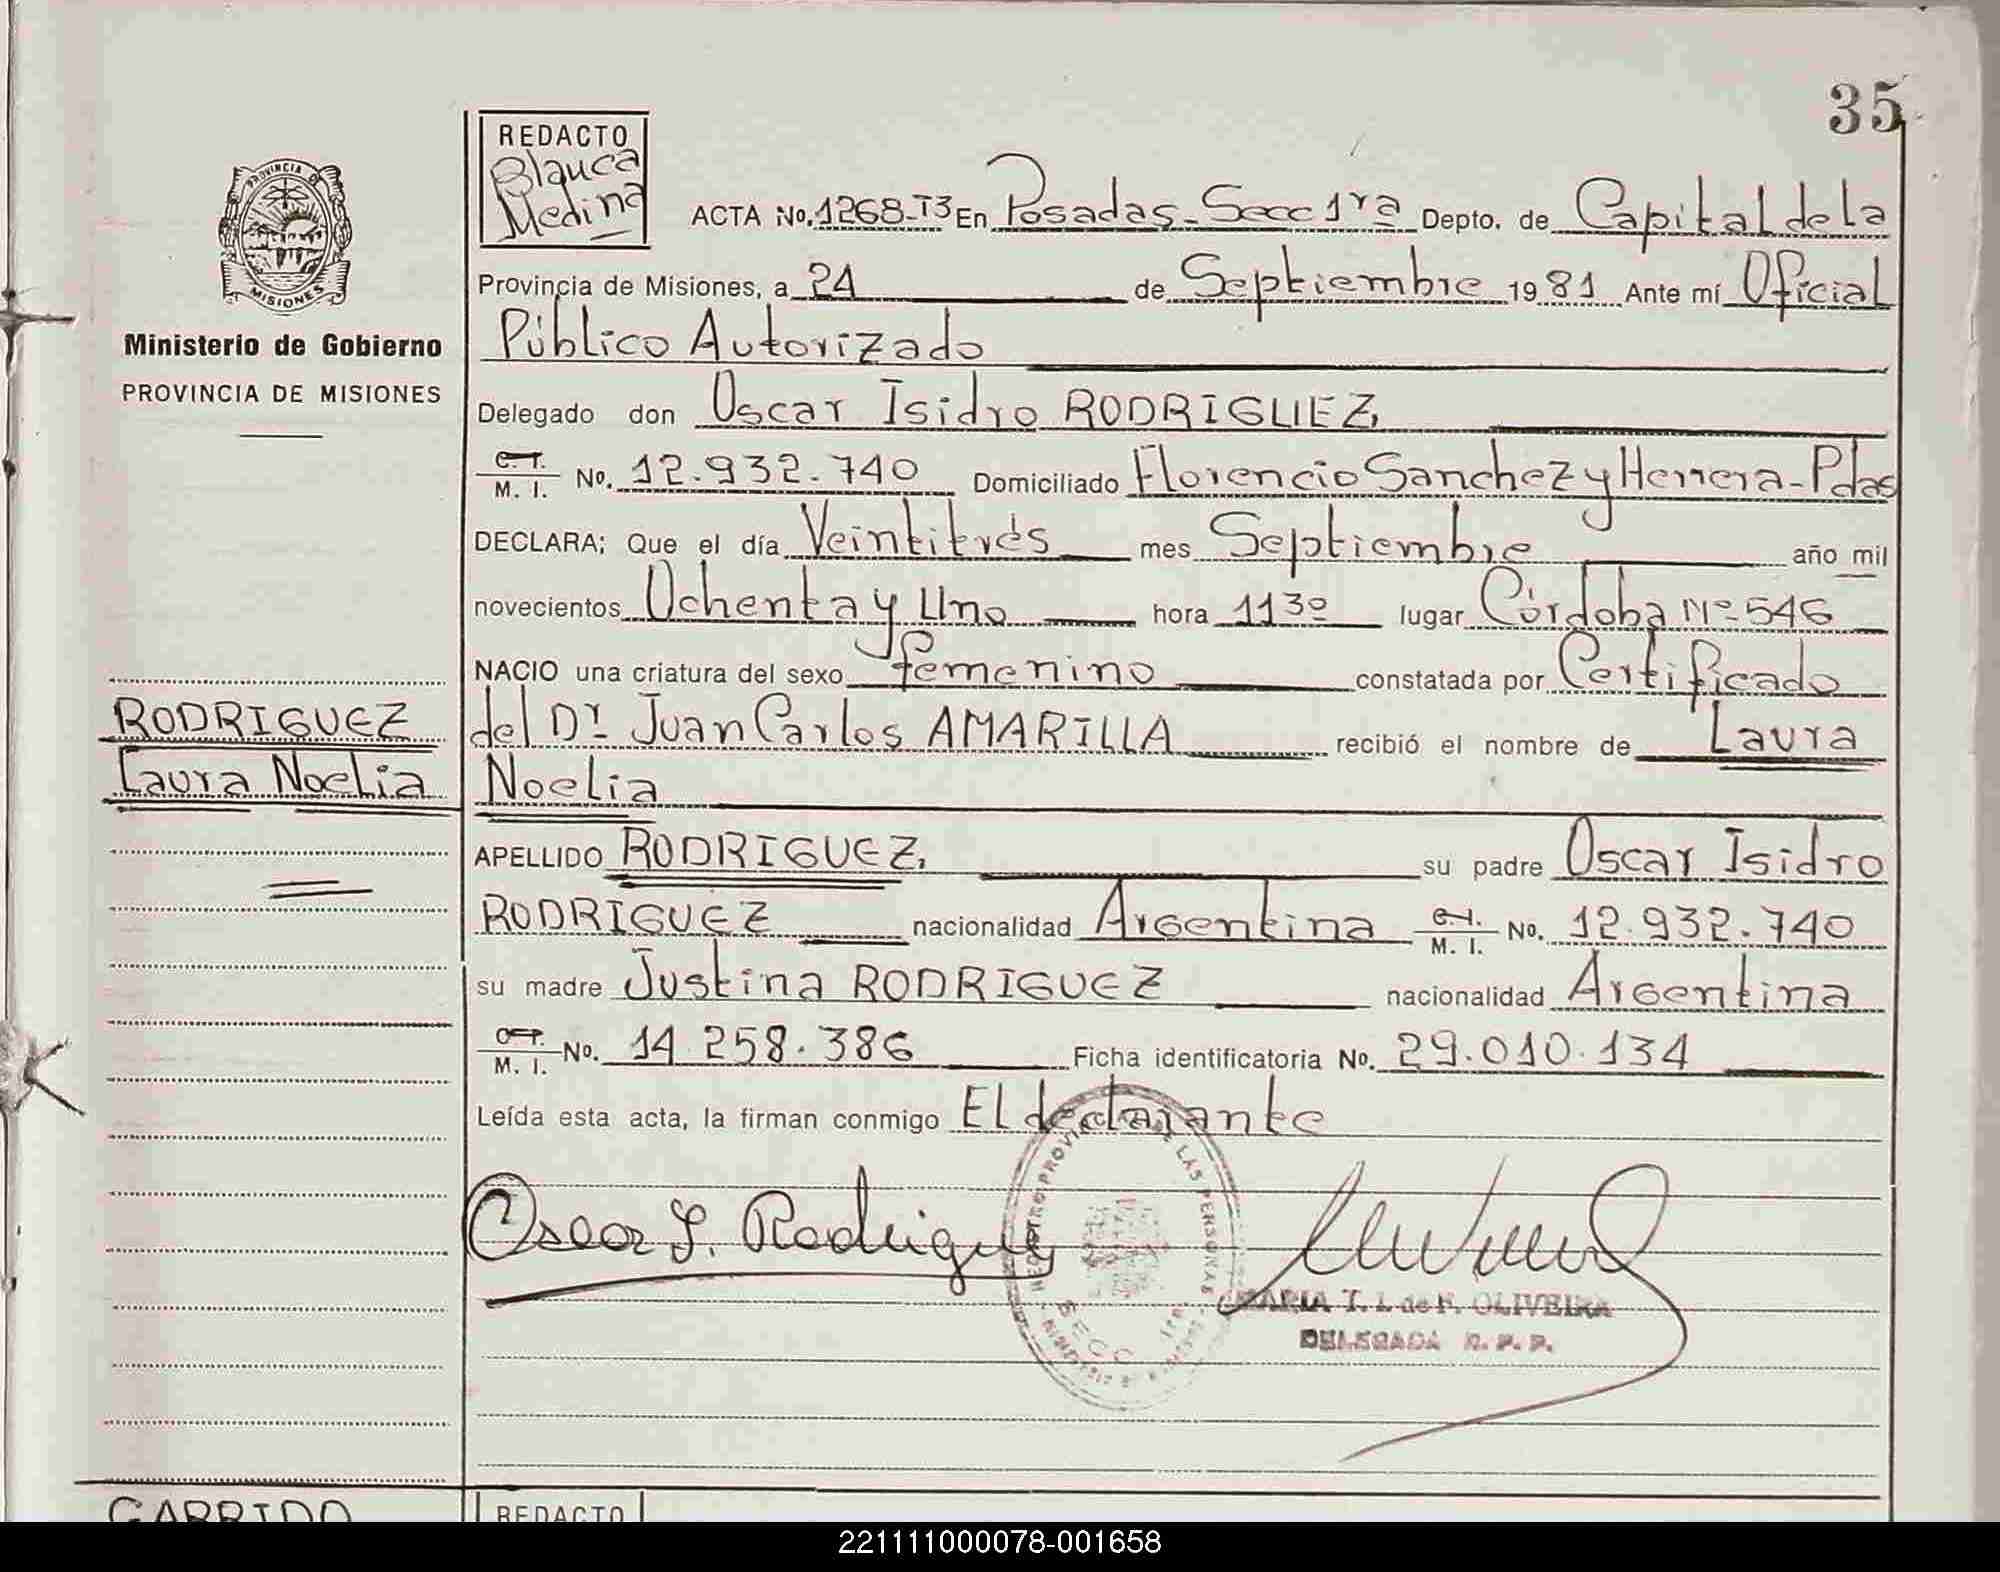 35
REDACTO
Blanca
Medina
PROVINCIA DE
MISIONES
ACTA No. 1268-T3 En Posadas-Secc 1ra Depto. de Capital de la
Provincia de Misiones, a 24 de Septiembre 1981 Ante mí Oficial
Ministerio de Gobierno
PROVINCIA DE MISIONES
Público Autorizado
Delegado don Oscar Isidro RODRIGUEZ,
C. I. M. I. No. 12.932.740 Domiciliado Florencio Sanchez y Herrera-Pdas
DECLARA; Que el día Veintitrés mes Septiembre año mil
novecientos Ochenta y Uno hora 11 30 lugar Córdoba Nº 546
NACIO una criatura del sexo femenino constatada por Certificado
RODRIGUEZ
Laura Noelia
del Dr Juan Carlos AMARILLA recibió el nombre de Laura
Noelia
APELLIDO RODRIGUEZ, su padre Oscar Isidro
RODRIGUEZ nacionalidad Argentina C. I. M. I. No. 12.932.740
su madre Justina RODRIGUEZ nacionalidad Argentina
M. I. No. 14.258.386 Ficha identificatoria No. 29.010.134
Leída esta acta, la firman conmigo El declarante
Oscar I. Rodriguez
REGISTRO PROVINCIAL DE LAS PERSONAS
SECC
MARIA T. L. de F. OLIVEIRA
DELEGADA R. P. P.
GARRIDO
REDACTO
221111000078-001658